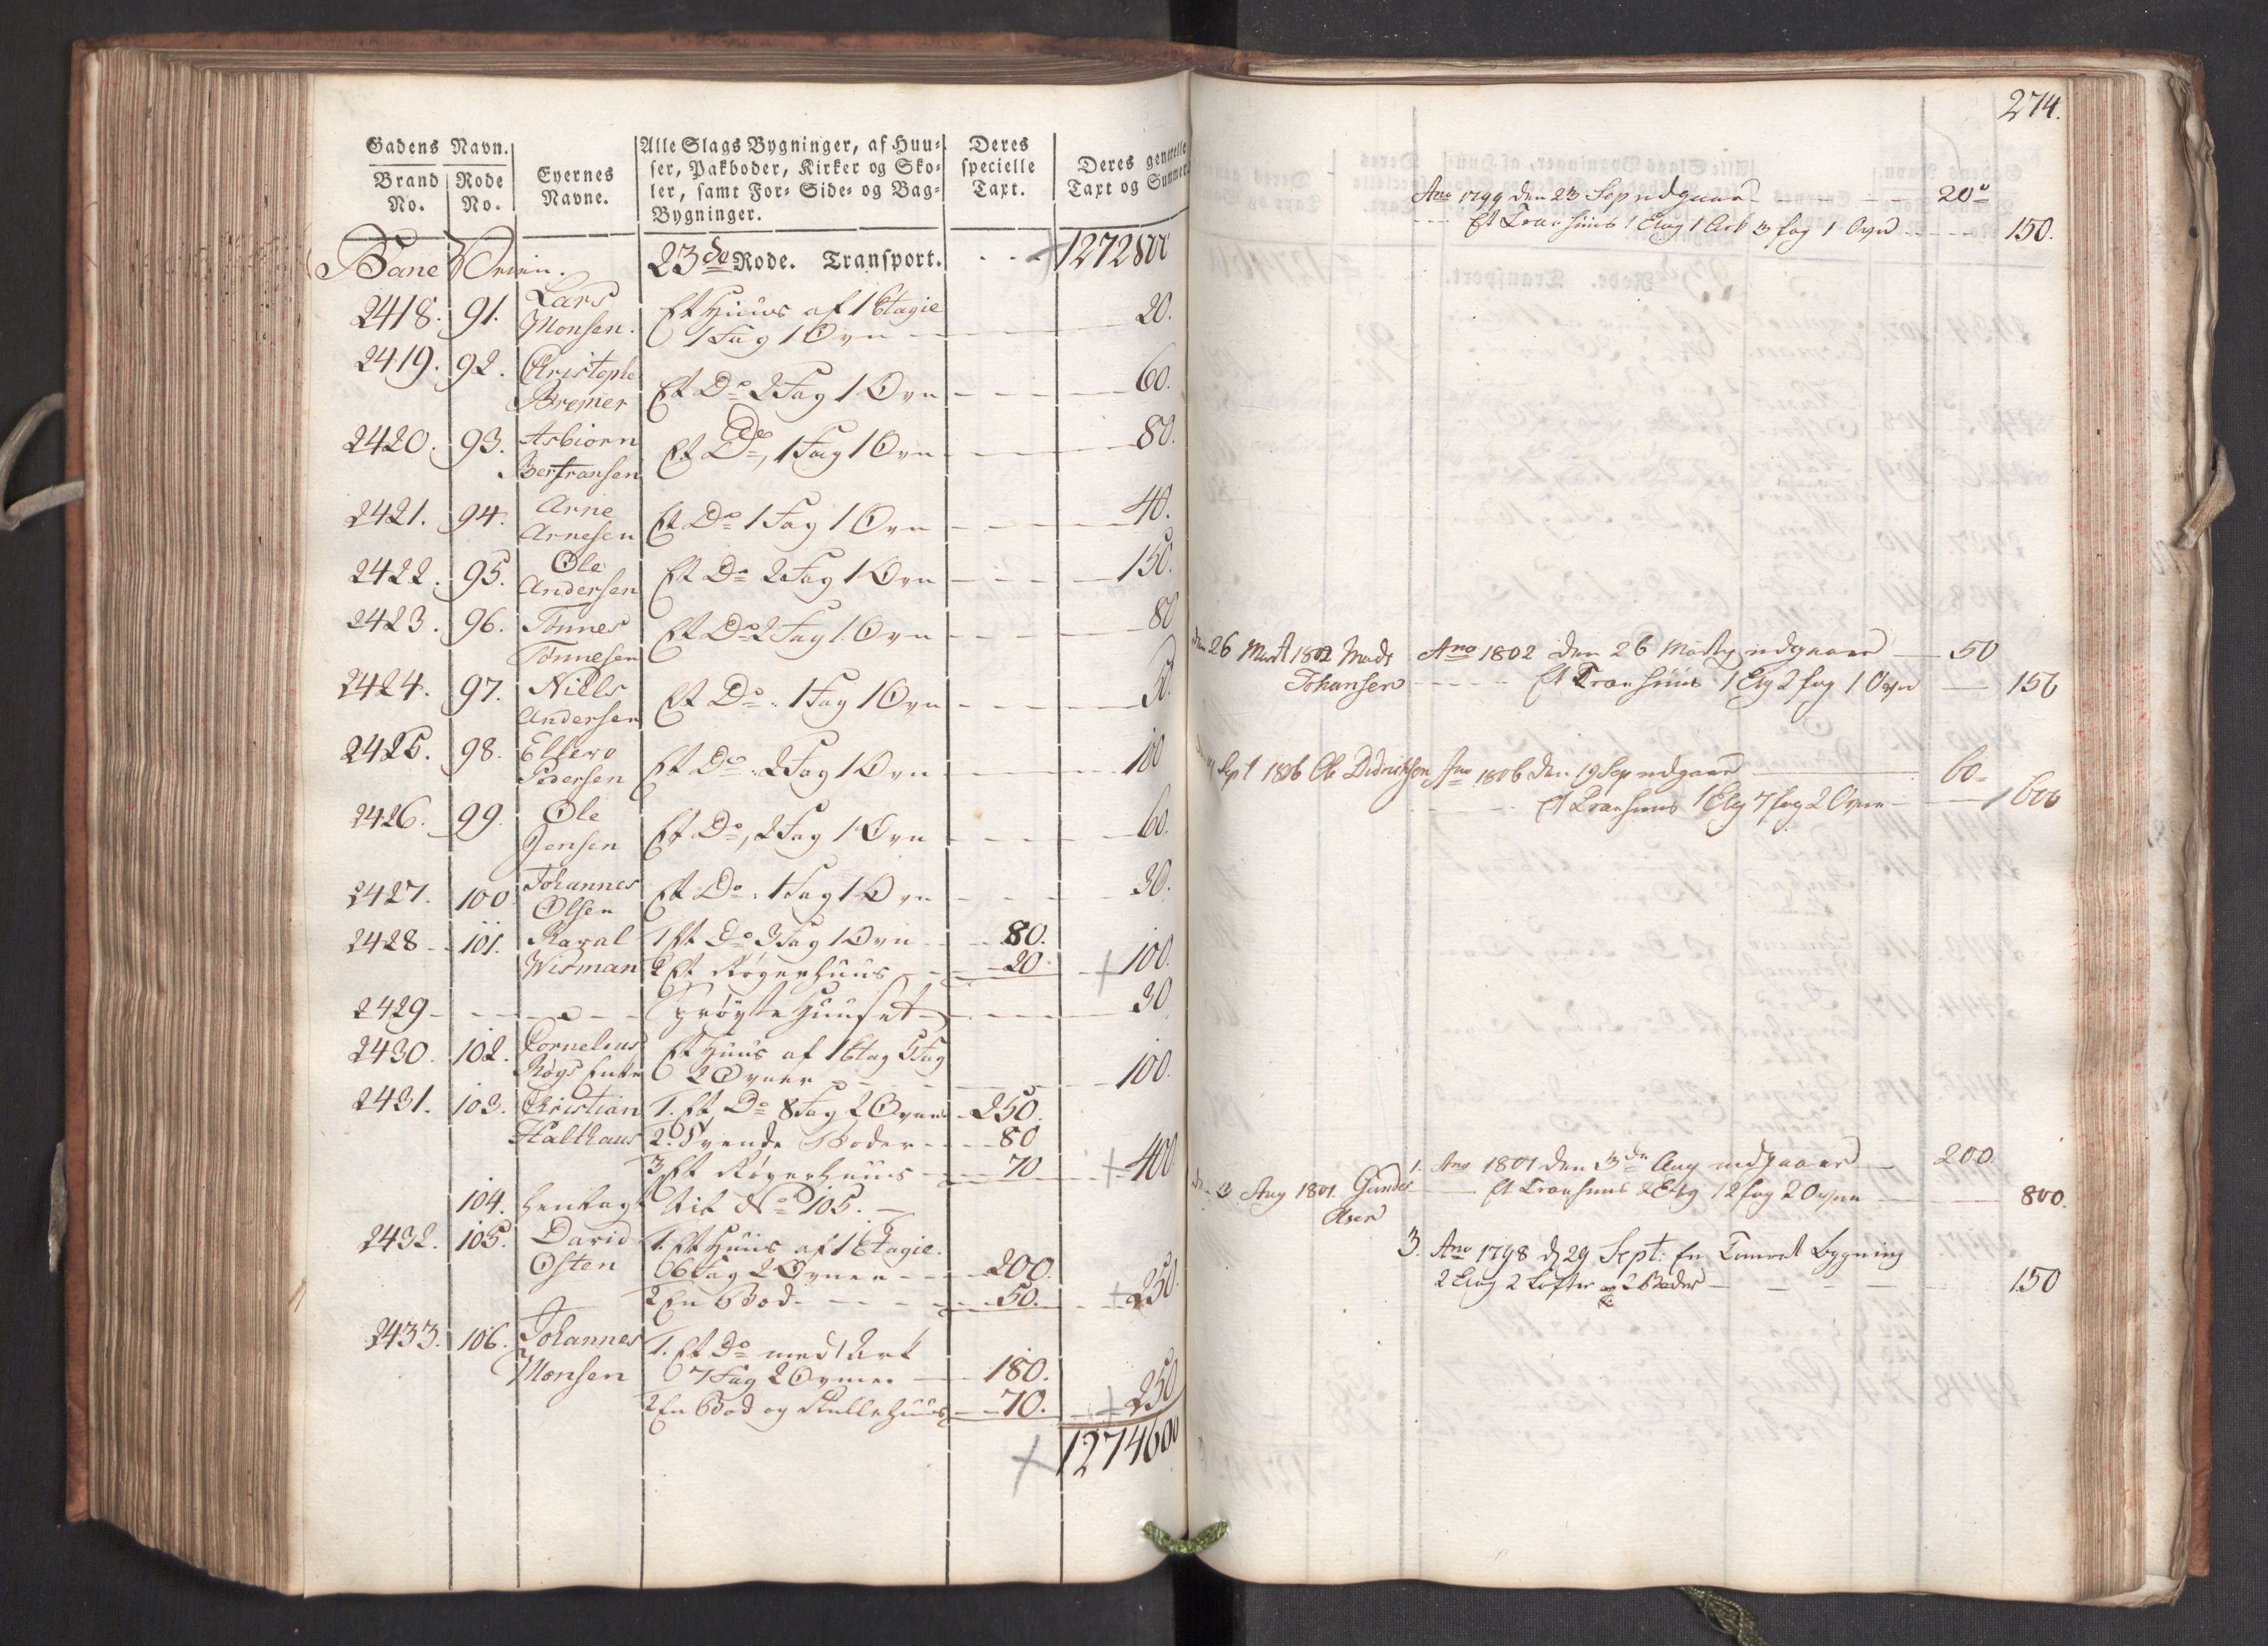 Gadens Navn.
Brand No.
Rode No.
Eyernes Navne.
Alle Slags Bygninger, af Huu-
ser, Pakboder, Kirker og Sko-
ler, samt For- Side- og Bag-
Bygninger.
Deres specielle Taxt.
Deres generelle Taxt og Summer.
23de Rode. Transport. 1272800
2418. 91. Lars Monsen. Et Huus af 1 Etagie
1 Fag 1 Ovn 20.
2419. 92. Christoph Bremer Et Do 2 Fag 1 Ovn 60.
2420. 93. Asbiorn Bertransen Et Do, 1 Fag 1 Ovn 80.
2421. 94. Arne Arnesen Et Do 1 Fag 1 Ovn 40.
2422. 95. Ole Andersen Et Do 2 Fag 1 Ovn 150.
2423. 96. Tønnes Tønnesen Et Do 2 Fag 1 Ovn 80
2424. 97. Niels Andersen Et Do 1 Fag 1 Ovn 50.
2425. 98. Pedersen Et Do 2 Fag 1 Ovn 100
2426. 99. Ole Jensen Et Do, 2 Fag 1 Ovn 60.
2427. 100. Johannes Olsen Et Do 1 Fag 1 Ovn 30.
2428 101. Wisman 1 Et Do 3 Fag 1 Ovn 80.
2 Et Røgerhuus 20. 100.
2429 Sprøyte Huuset 30
2430. 102. Cornelius Enke Et Huus af 1 Etag 5 Fag
2 Ovner 100.
2431. 103. Christian Halthaus 1. Et Do 8 Fag 2 Ovner 250.
2. Tvende Boder 80
3 Et Røgerhuus 70 400
104. henlagt til No 105.
2432. 105. David Osten 1. Et Huus af 1 Etagie.
6 Fag 2 Ovner 200.
2 En Bod 50. 250.
2433. 106. Johannes Monsen 1. Et Do med 1 Ark
7 Fag 2 Ovner 180.
2 En Bod og Huus 70. 250
1274600
274.
Ano 1799 den 23 Sep udgaar 20
Et Træe huus 1 Etag 1 Ark 3 fag 1 Ovn 150.
den 26 Mart 1802 Mads Johansen
Ano 1802 den 26 Marty udgaar 50
Et Træe huus 1 Etg 2 fag 1 Ovn 150
Sept 1806 Ole Didrichsen Ano 1806 den 19 Sep udgaar 60
et Træehuus 1 Etg 7 fag 2 Ovne 600
3 Aug 1801 Gunder Olsen
1. Ano 1801 den 3de Aug udgaaer 200.
Et Træehuus 2 Etg 12 fag 2 Ovne 800.
3. Ano 1798 d 29 Sept: En Tømret bygning
2 Etag 2 Lofter og 2 Boder 150